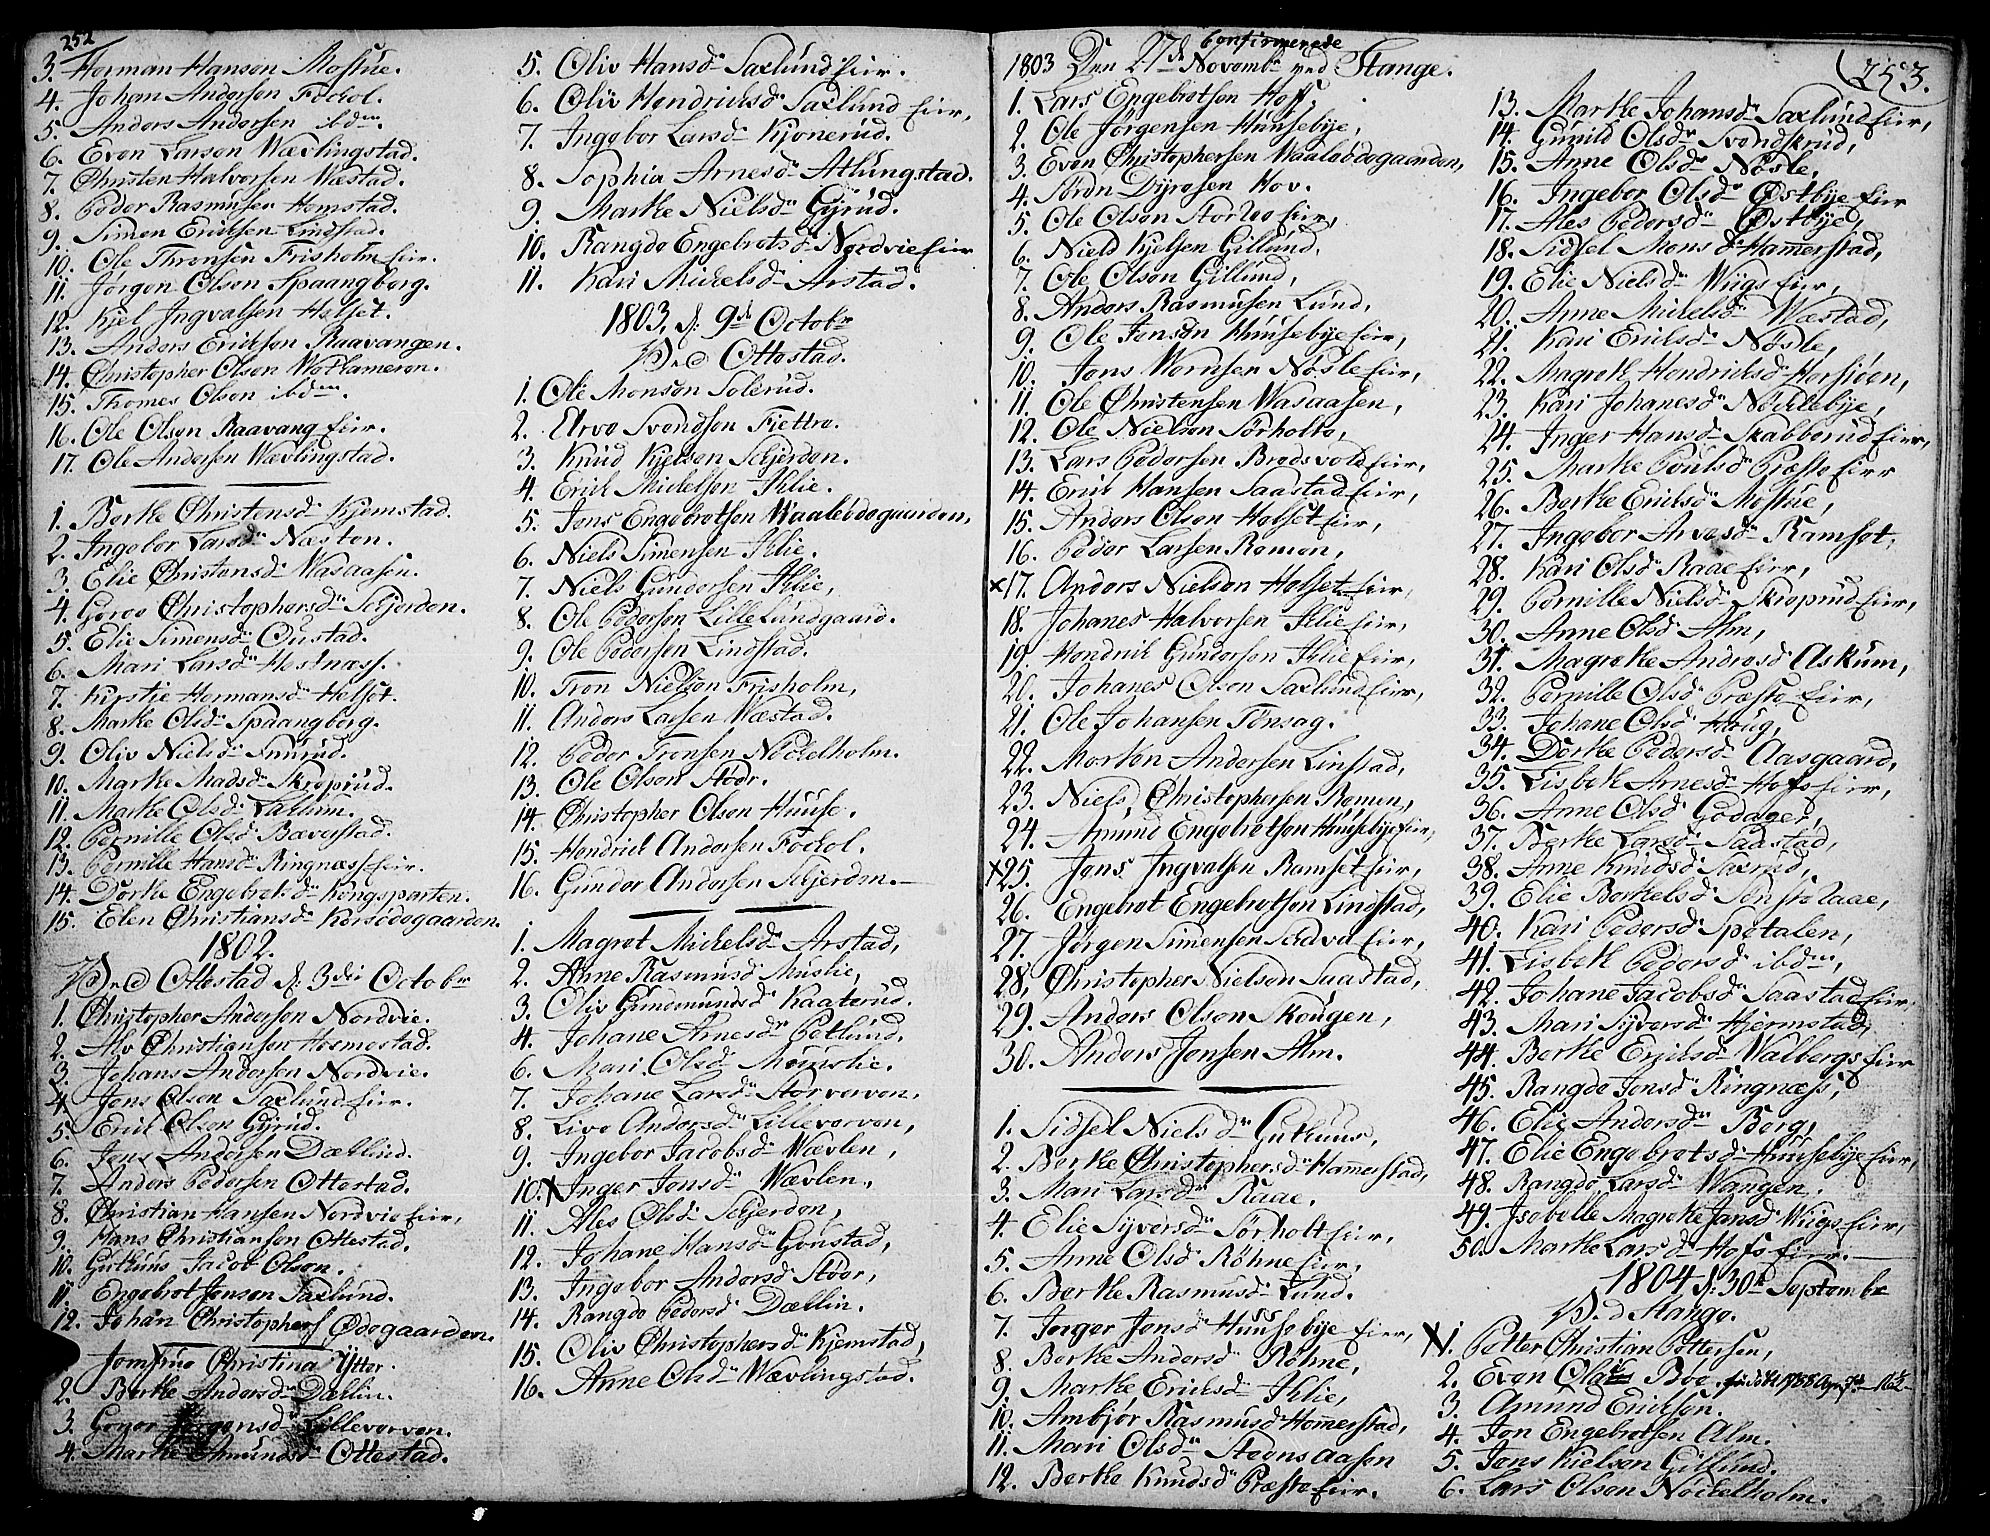 252
3. Herman Hansen Mostue.
4. Johan Andersen Fockol.
5. Anders Andersen ibdm.
6. Even Larsen Wævlingstad.
7. Christen Halvorsen Wæstad.
8. Peder Rasmusen Hemstad.
9. Simen Ericksen Lindstad.
10. Ole Thronsen Frisholm Eier.
11. Jørgen Olsen Spaangberg.
12. Kjel Ingvalsen Helset.
13. Anders Ericksen Raavangen.
14. Christopher Olsen
15. Thomes Olsen ibdm.
16. Ole Olsen Raavang Eier.
17. Ole Andersen Wævlingstad.
1. Berthe Christensdr Kjemstad.
2. Ingebor Larsdr Næsten.
3. Elie Christensdr Wasaasen.
4. Goroe Christophersdr Schjerden.
5. Elie Simensdr Oustad.
6. Mari Larsdr Hestnæss.
7. Kirstie Hermansdr Helset.
8. Marthe Olsdr Spaangberg.
9. Oliv Nielsdr
10. Marthe Madsdr Skreprud.
11. Marthe Olsdr
12. Pernille Olsdr Bæverstad.
13. Pernille Hansdr Ringnæss Eier.
14. Dorthe Engebretsdr Kongsparten.
15. Elen Christiansdr Korsødegaarden.
1802.
Ved Ottestad d: 3die Octobr
1. Christopher Andersen Nordvie.
2. Alv Christiansen Hemestad.
3. Johans Andersen Nordvie.
4. Jens Olsen Saxlund Eier.
5. Erick Olsen Gyrud.
6. Jens Andersen Dællind.
7. Anders Pedersen Ottestad.
8. Christian Hansen Nordvie Eier,
9. Hans Christiansen Ottestad.
10. Guthuus Jacob Olsen.
11. Engebret Jensen Saxlund.
12. Johan Christophers Ødegaarden.
Jomfrue Christina Ytter.
2. Berthe Andersdr Dællin.
3. Goroe Jørgensdr Lillevorven.
4. Marthe Amundsdr Ottestad.
5. Oliv Hansdr Saxlund Eier.
6. Oliv Hendricksdr Saxlund Eier,
7. Ingebor Larsdr Kjønerud.
8. Sophia Arnesdr Athungstad.
9. Marthe Nielsdr Gyrud.
10. Rangdo Engebretsdr Nordvie Eier
11. Kari Mickelsdr Arstad.
1803, d: 9de Octobr
Ved Ottestad.
1. Ole Monsen Solerud.
2. Arve Svendsen Fiettre.
3. Knud Kjelsen Schjerden.
4. Erick Mickelsen Ihlie.
5. Jens Engebretsen Waaleødegaarden,
6. Niels Simensen Ihlie.
7. Niels Gundersen Ihlie,
8. Ole Pedersen Lille Lundgaard.
9. Ole Pedersen Lindstad.
10. Tron Nielsen Frisholm,
11. Anders Larsen Wæstad.
12. Peder Tronsen Nøckelholm.
13. Ole Olsen Stoer.
14. Christopher Olsen Huuse.
15. Hendrick Andersen Fockol.
16. Gunder Andersen Schjerden.
1. Magret Mickelsdr Arstad,
2. Anne Rasmusdr Muslie,
3. Oliv Gudmundsdr Kaaterud.
4. Johane Arnesdr Petlund.
6. Mari Olsdr Momslie.
7. Johane Larsdr Storvorven,
8. Live Andersdr Lillevorven,
9. Ingebor Jacobsdr Wævlen,
10. X Inger Jensdr Wævlen,
11. Ales Olsdr Schjerden,
12. Johane Hansdr Goustad,
13. Ingebor Andersdr Stoer,
14. Rangdo Pedersdr Dællin.
15. Oliv Christophersdr Kjemstad,
16. Anne Olsdr Wævlingstad.
253.
confirmerede
1803 Den 27de Novembr ved Stange.
1. Lars Engebretsen Hoff,
2. Ole Jørgensen Huusebye,
3. Even Christophersen Waaleødegaarden,
4. Sørdn Dyresen Hov.
5. Ole Olsen Storloe Eier,
6. Niels Kjelsen Gillund,
7. Ole Olsen Gillund,
8. Anders Rasmusen Lund,
9. Ole Jensen Huusebye Eier,
10. Jens Wernsen Nøsle Eier,
11. Ole Christensen Wasaasen,
12. Ole Nielsen Sørholte,
13. Lars Pedersen Bredsvold Eier,
14. Erick Hansen Saastad Eier,
15. Anders Olsen Helset Eier,
16. Peder Larsen Romen,
x17. Anders Nielsen Helset Eier,
18. Johanes Halvorsen Ihlie Eier,
19. Hendrick Gundersen Ihlie Eier,
20. Johanes Olsen Saxlund Eier,
21. Ole Johansen Tønsag.
22. Morten Andersen Linstad,
23. Niels Christophersen Romen,
24. Amund Engebretsen Huusebye Eier,
x25. Jens Ingvalsen Ramset Eier,
26. Engebret Engebretsen Lindstad,
27. Jørgen Simensen Eier,
28. Christopher Nielsen Saastad,
29. Anders Olsen Skougen,
30. Anders Jensen Alm.
1. Sidsel Nielsdr Guthuus,
2. Berthe Christophersdr Hammerstad,
3. Mari Larsdr Raae.
4. Elie Syversdr Sørholt Eier,
5. Anne Olsdr Røhne Eier,
6. Berthe Rasmusdr Lund.
7. Inger Jensdr Huusebye Eier,
8. Berthe Andersdr Røhne,
9. Marthe Ericksdr Ihlie,
10. Ambjør Rasmusdr Homerstad,
11. Mari Olsdr Steensaasen
12. Berthe Knudsdr Præste Eier.
13. Marthe Johansdr Saxlund Eier,
14. Gunild Olsdr Svendskrud,
15. Anne Olsdr Nøsle,
16. Ingebor Olsdr Østbye Eier
17. Ales Pedersdr Østbye,
18. Sidsel Monsdr Hammerstad,
19. Elie Nielsdr Wiigs Eier,
20. Anne Mickelsdr Wæstad,
21. Kari Ericksdr Nøsle,
22. Magreth Hendricksdr Horsiøen,
23. Kari Johanesdr Nøcklebye,
24. Inger Hansdr Skabberud Eier,
25. Marthe Poulsdr Præste Eier
26. Berthe Ericksdr Mostue,
27. Ingebor Arvesdr Ramset,
28. Kari Olsdr Raae Eier,
29. Pernille Nielsdr Skreprud Eier,
30. Anne Olsdr Alm,
31. Magrethe Andresdr Askum,
32. Pernille Olsdr Præste Eier,
33. Johane Olsdr Hrug,
34. Dorthe Pedersdr Aasgaard,
35. Lisbeth Arnesdr Hofs Eier,
36. Anne Olsdr Godager,
37. Berthe Larsdr Saastad,
38. Anne Knudsdr Saxrud,
39. Elie Berthelsdr
40. Kari Pedersdr Spetalen,
41. Lisbeth Pedersdr ibdm,
42. Johane Jacobsdr Saastad Eier,
43. Mari Syversdr Hjermstad,
44. Berthe Ericksdr Walbergs Eier
45. Rangdo Jensdr Ringnæss,
46. Elie Andersdr Berg,
47. Elie Engebretsdr Huusebye Eier,
48. Rangdo Larsdr Wangen,
49. Isabelle Magrethe Jansdr Wiigs Eier,
50. Marthe Larsdr Hofs Eier.
1804 d: 30te Septembr
Ved Stange.
X1. Petter Christian Pettersen,
2. Even Olsen Boe
3. Amund Ericksen.
4. Jon Engebretsen Alm.
5. Jens Kielsen Gillund.
6. Lars Olsen Nøckelholm.